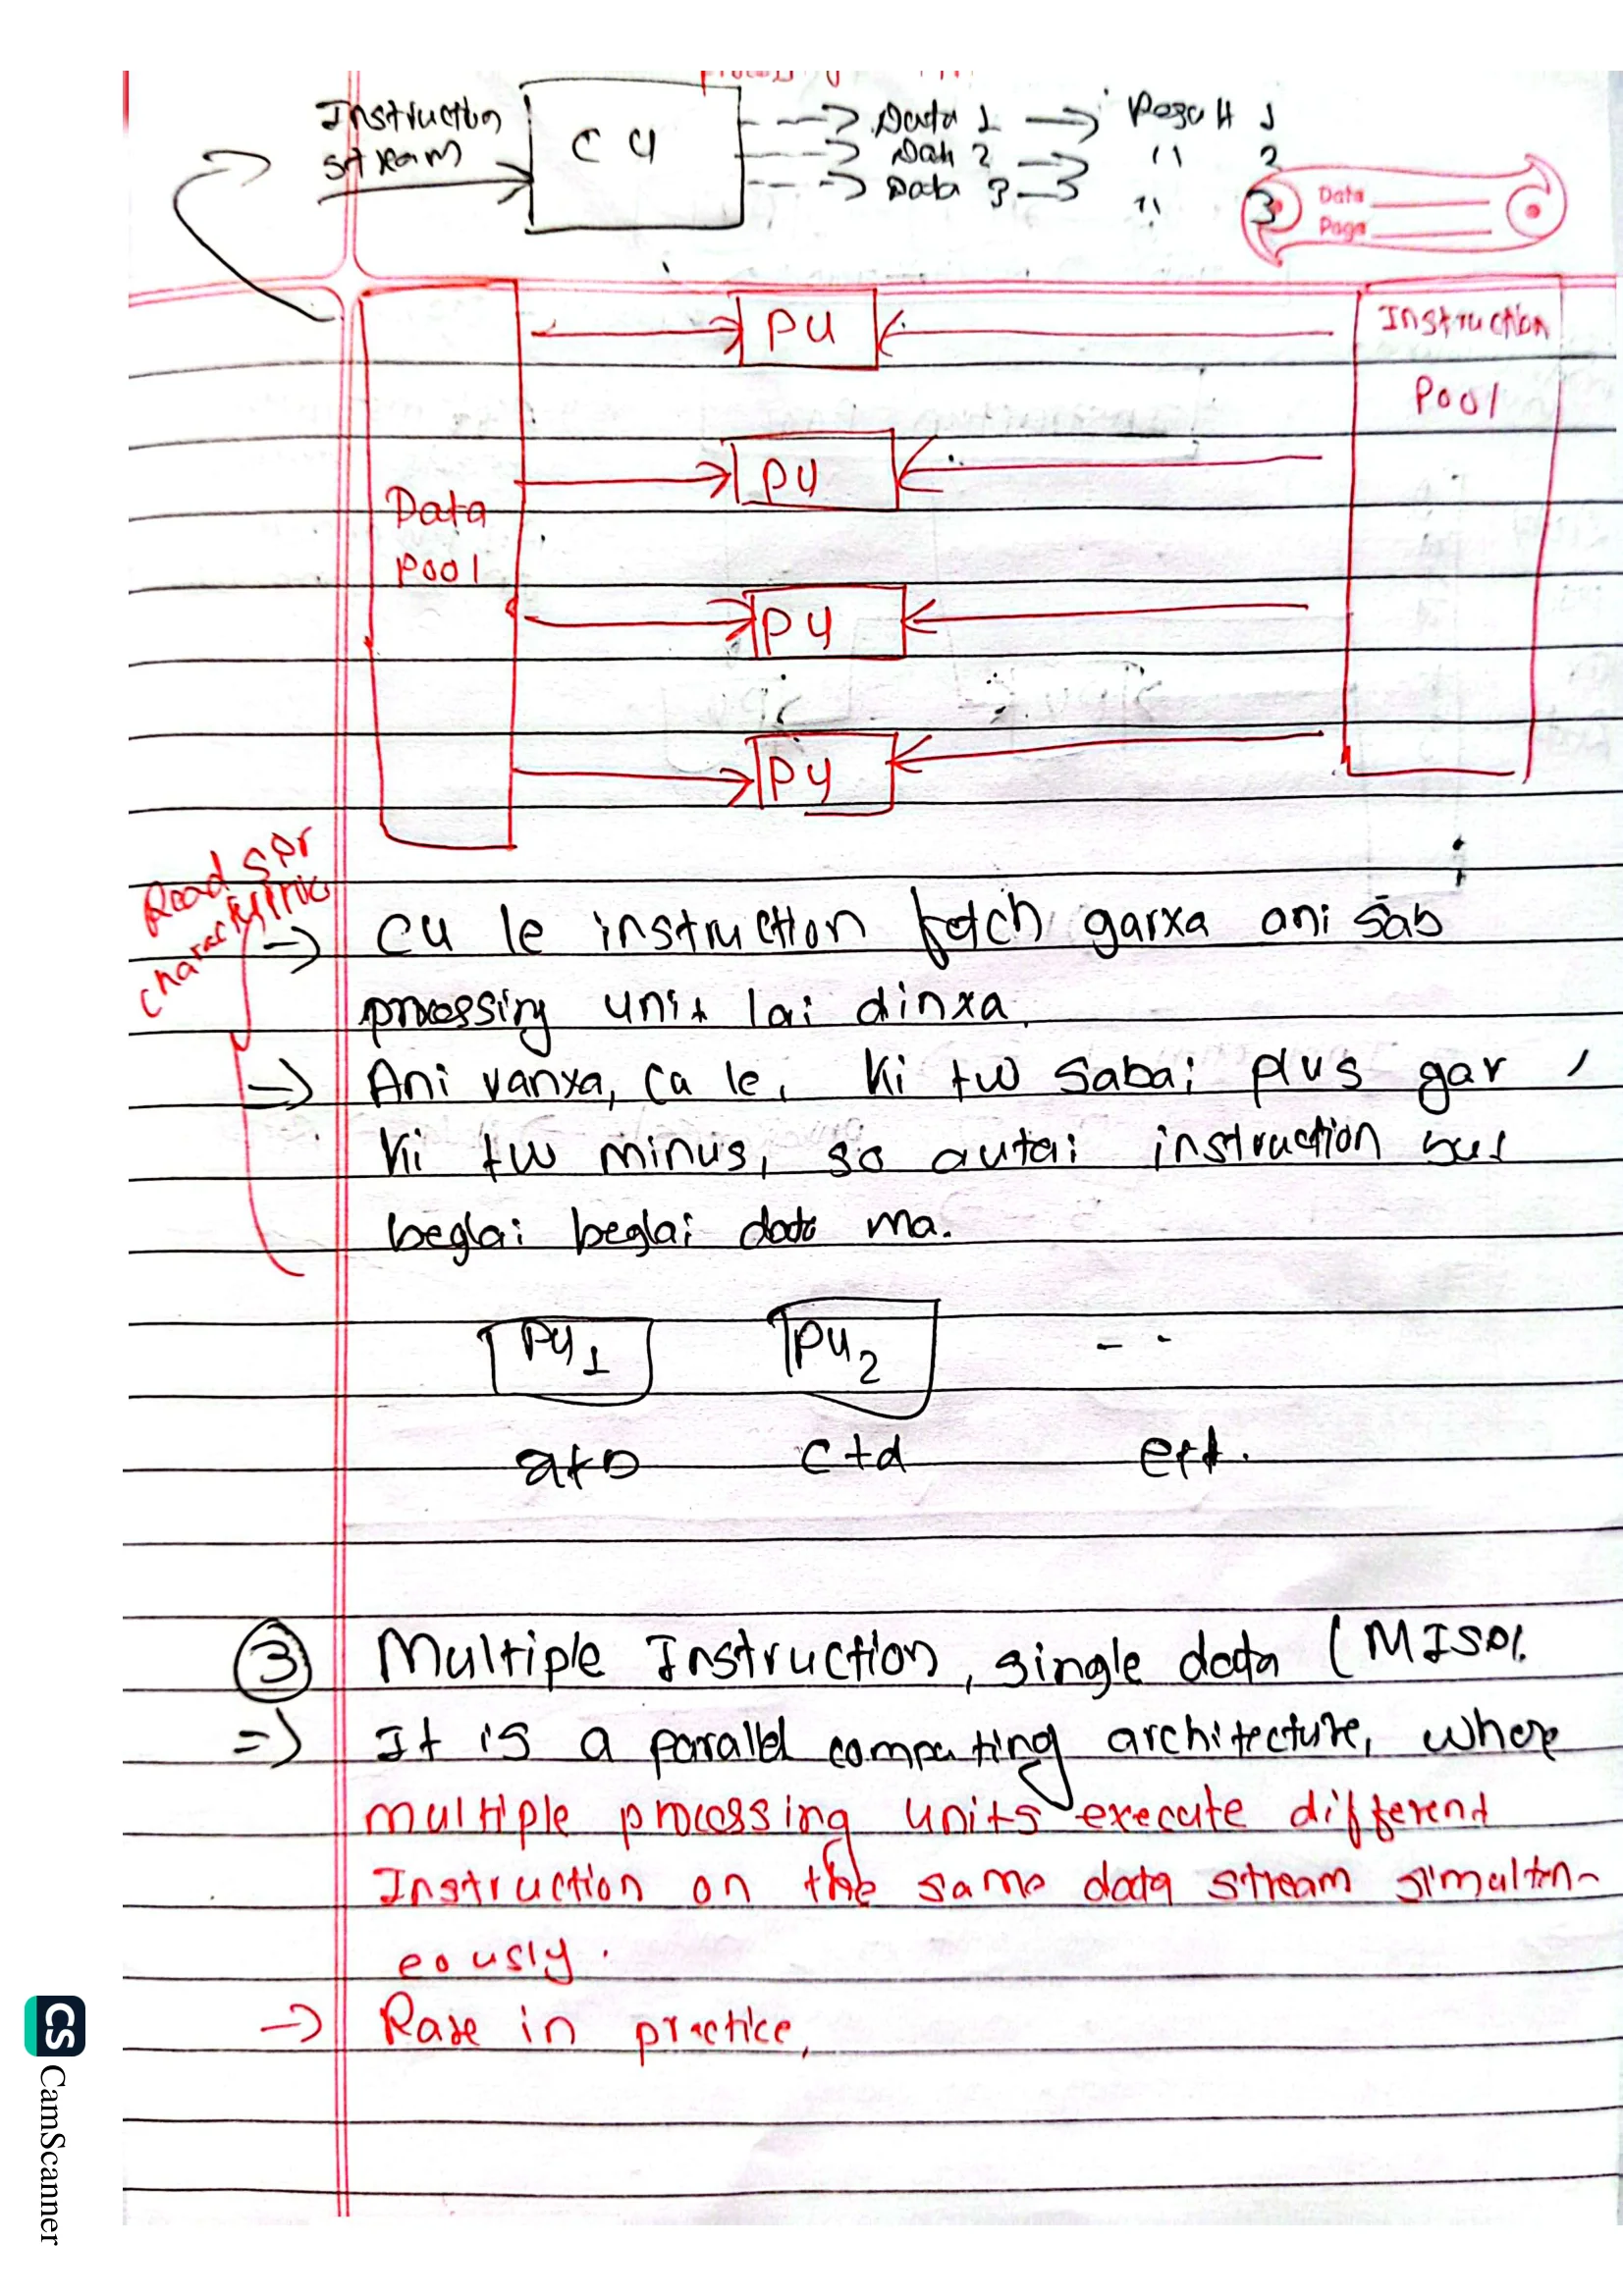 Instruction
stream
CU
Data 1
Result 1
Data 2
11 2
Data 3
11 3
Data
Page
PU
Instruction
Pool
PU
Data
Pool
PU
PU
Read
characteristics
CU le instruction fetch garxa ani sab
processing unit lai dinxa.
Ani vanxa, Ca le, ki tw sabai plus gar,
ki tw minus, so autai instruction
beglai beglai data ma.
PU1
PU2
- -
a+b
c+d
e+f.
3 Multiple Instruction, single data (MISD).
=> It is a parallel computing architecture, where
multiple processing units execute different
Instruction on the same data stream simultan-
eously.
-> Rare in practice,
CS CamScanner